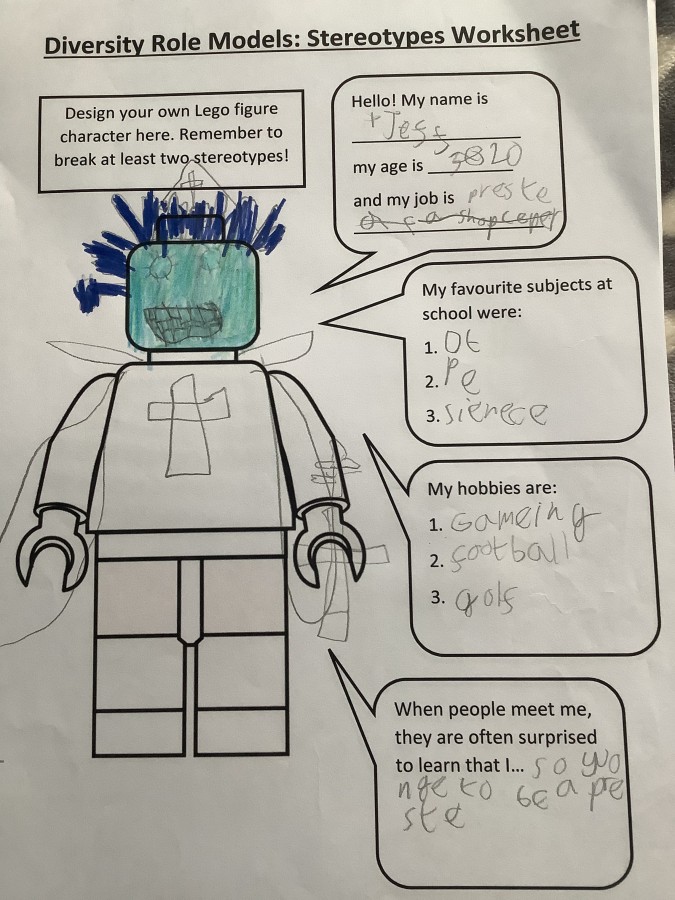 Diversity Role Models: Stereotypes Worksheet
Design your own Lego figure
character here. Remember to
break at least two stereotypes!
Hello! My name is
Jess
my age is 20
and my job is preste
shopceper
My favourite subjects at
school were:
1. Dt
2. Pe
3. sierece
My hobbies are:
1. Gameing
2. football
3. golf
When people meet me,
they are often surprised
to learn that I... so you
nge to be a pre
ste